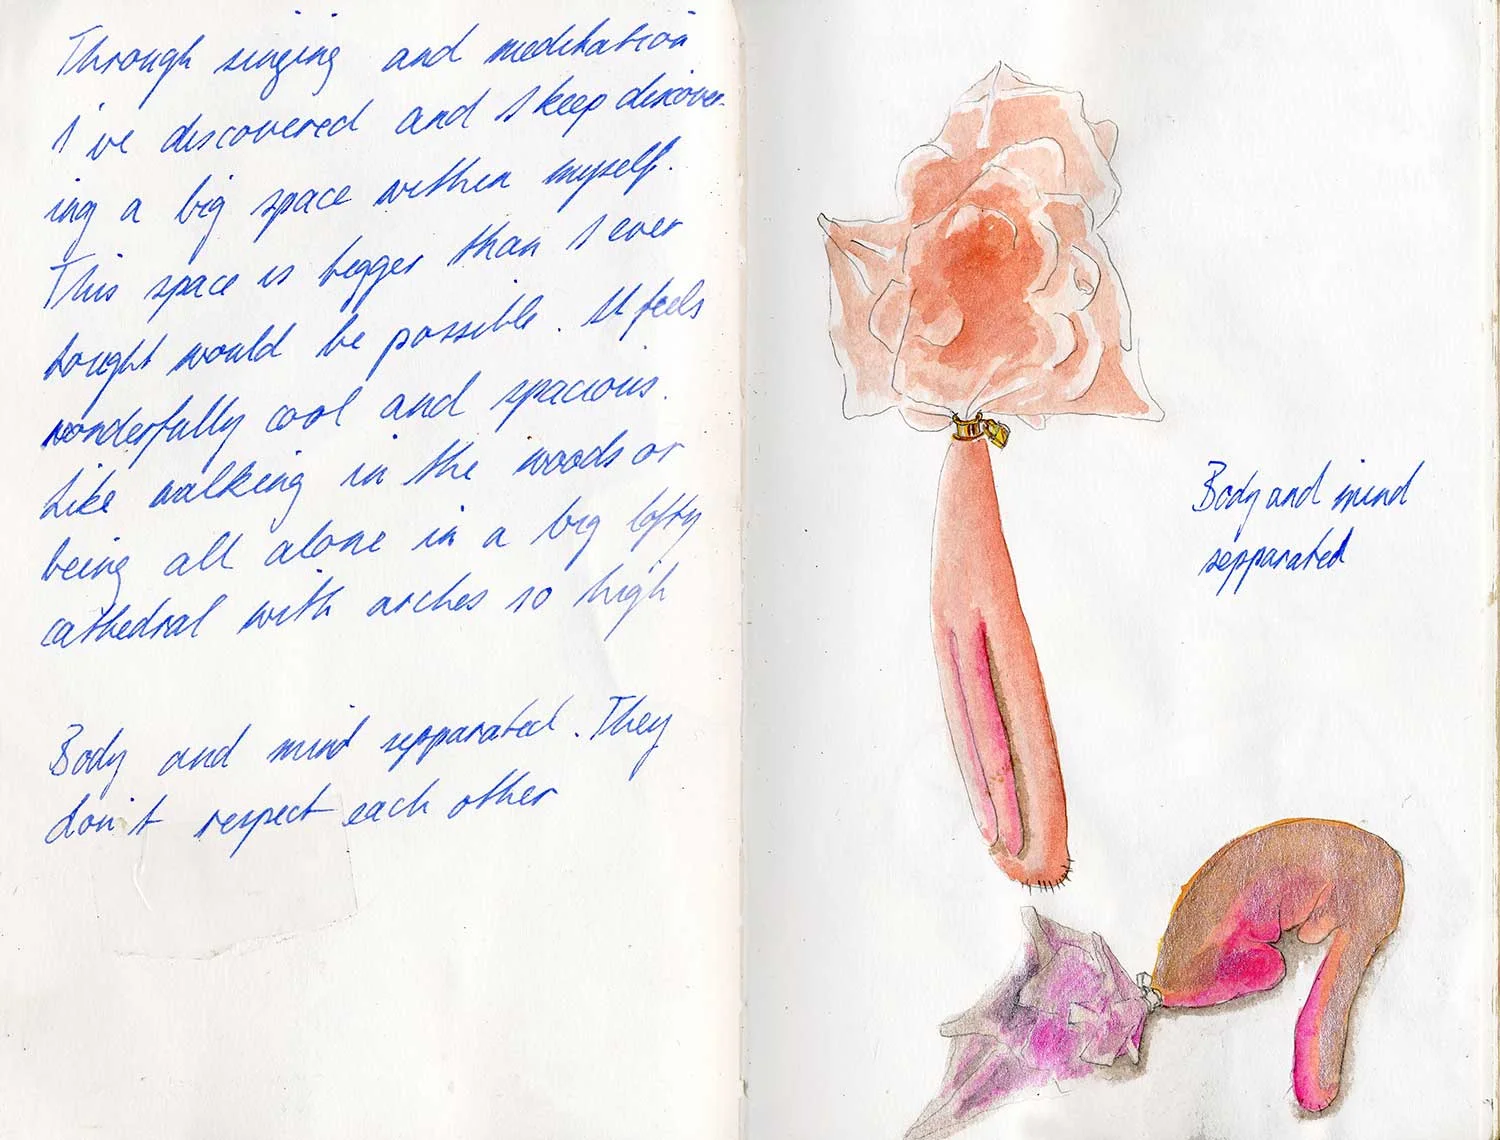 Through singing and meditation
I've discovered and I keep discover-
ing a big space within myself.
This space is bigger than I ever
tought would be possible. It feels
wonderfully cool and spacious.
Like walking in the woods or
being all alone in a big lofty
cathedral with arches so high
Body and mind sepparated. They
don't respect each other
Body and mind
sepparated